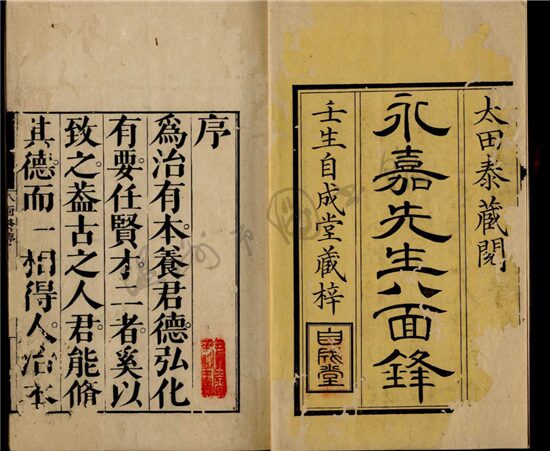 太田泰藏閱
永嘉先生八面鋒
壬生自成堂藏梓
自成堂
序
為治有本養君德弘化
有要任賢才二者奚以
致之葢古之人君能脩
其德而一相得人治本